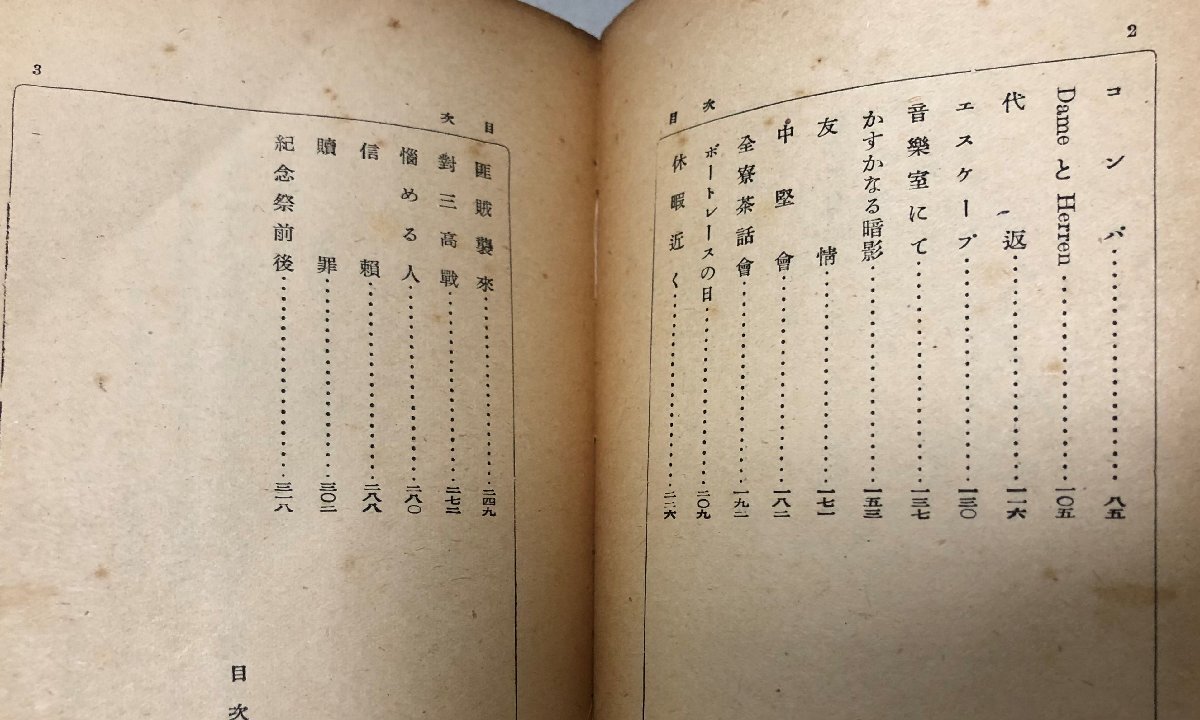 2
コンパ……………八五
DameとHerren……………一〇五
代返……………一一六
エスケープ……………一三〇
音樂室にて……………一三七
かすかなる暗影……………一五三
友情……………一七一
中堅會……………一八二
全寮茶話會……………一九二
ボートレースの日……………二〇九
休暇近く……………二二六
目次
3
目次
匪賊襲來……………二四九
對三高戰……………二七二
惱める人……………二八〇
信賴……………二八八
贖罪……………三〇二
紀念祭前後……………三一八
目次